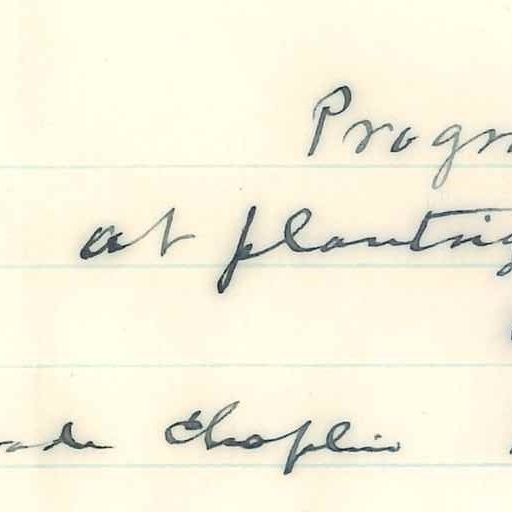 Progr
at planting
Chaplin